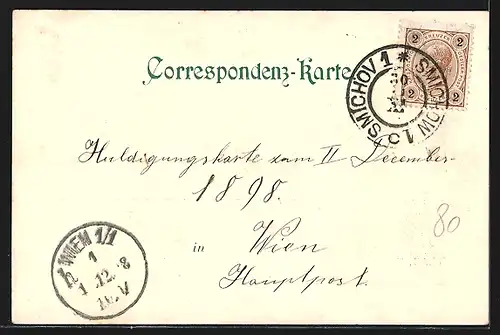 2 KREUZER 2
2 2
SMICHOV 1 * SMICHOW 1
30
XI
Correspondenz-Karte
Huldigungskarte zum II December
1898.
in Wien
Hauptpost.
WIEN 1/1
1
1 12. 8
h
80